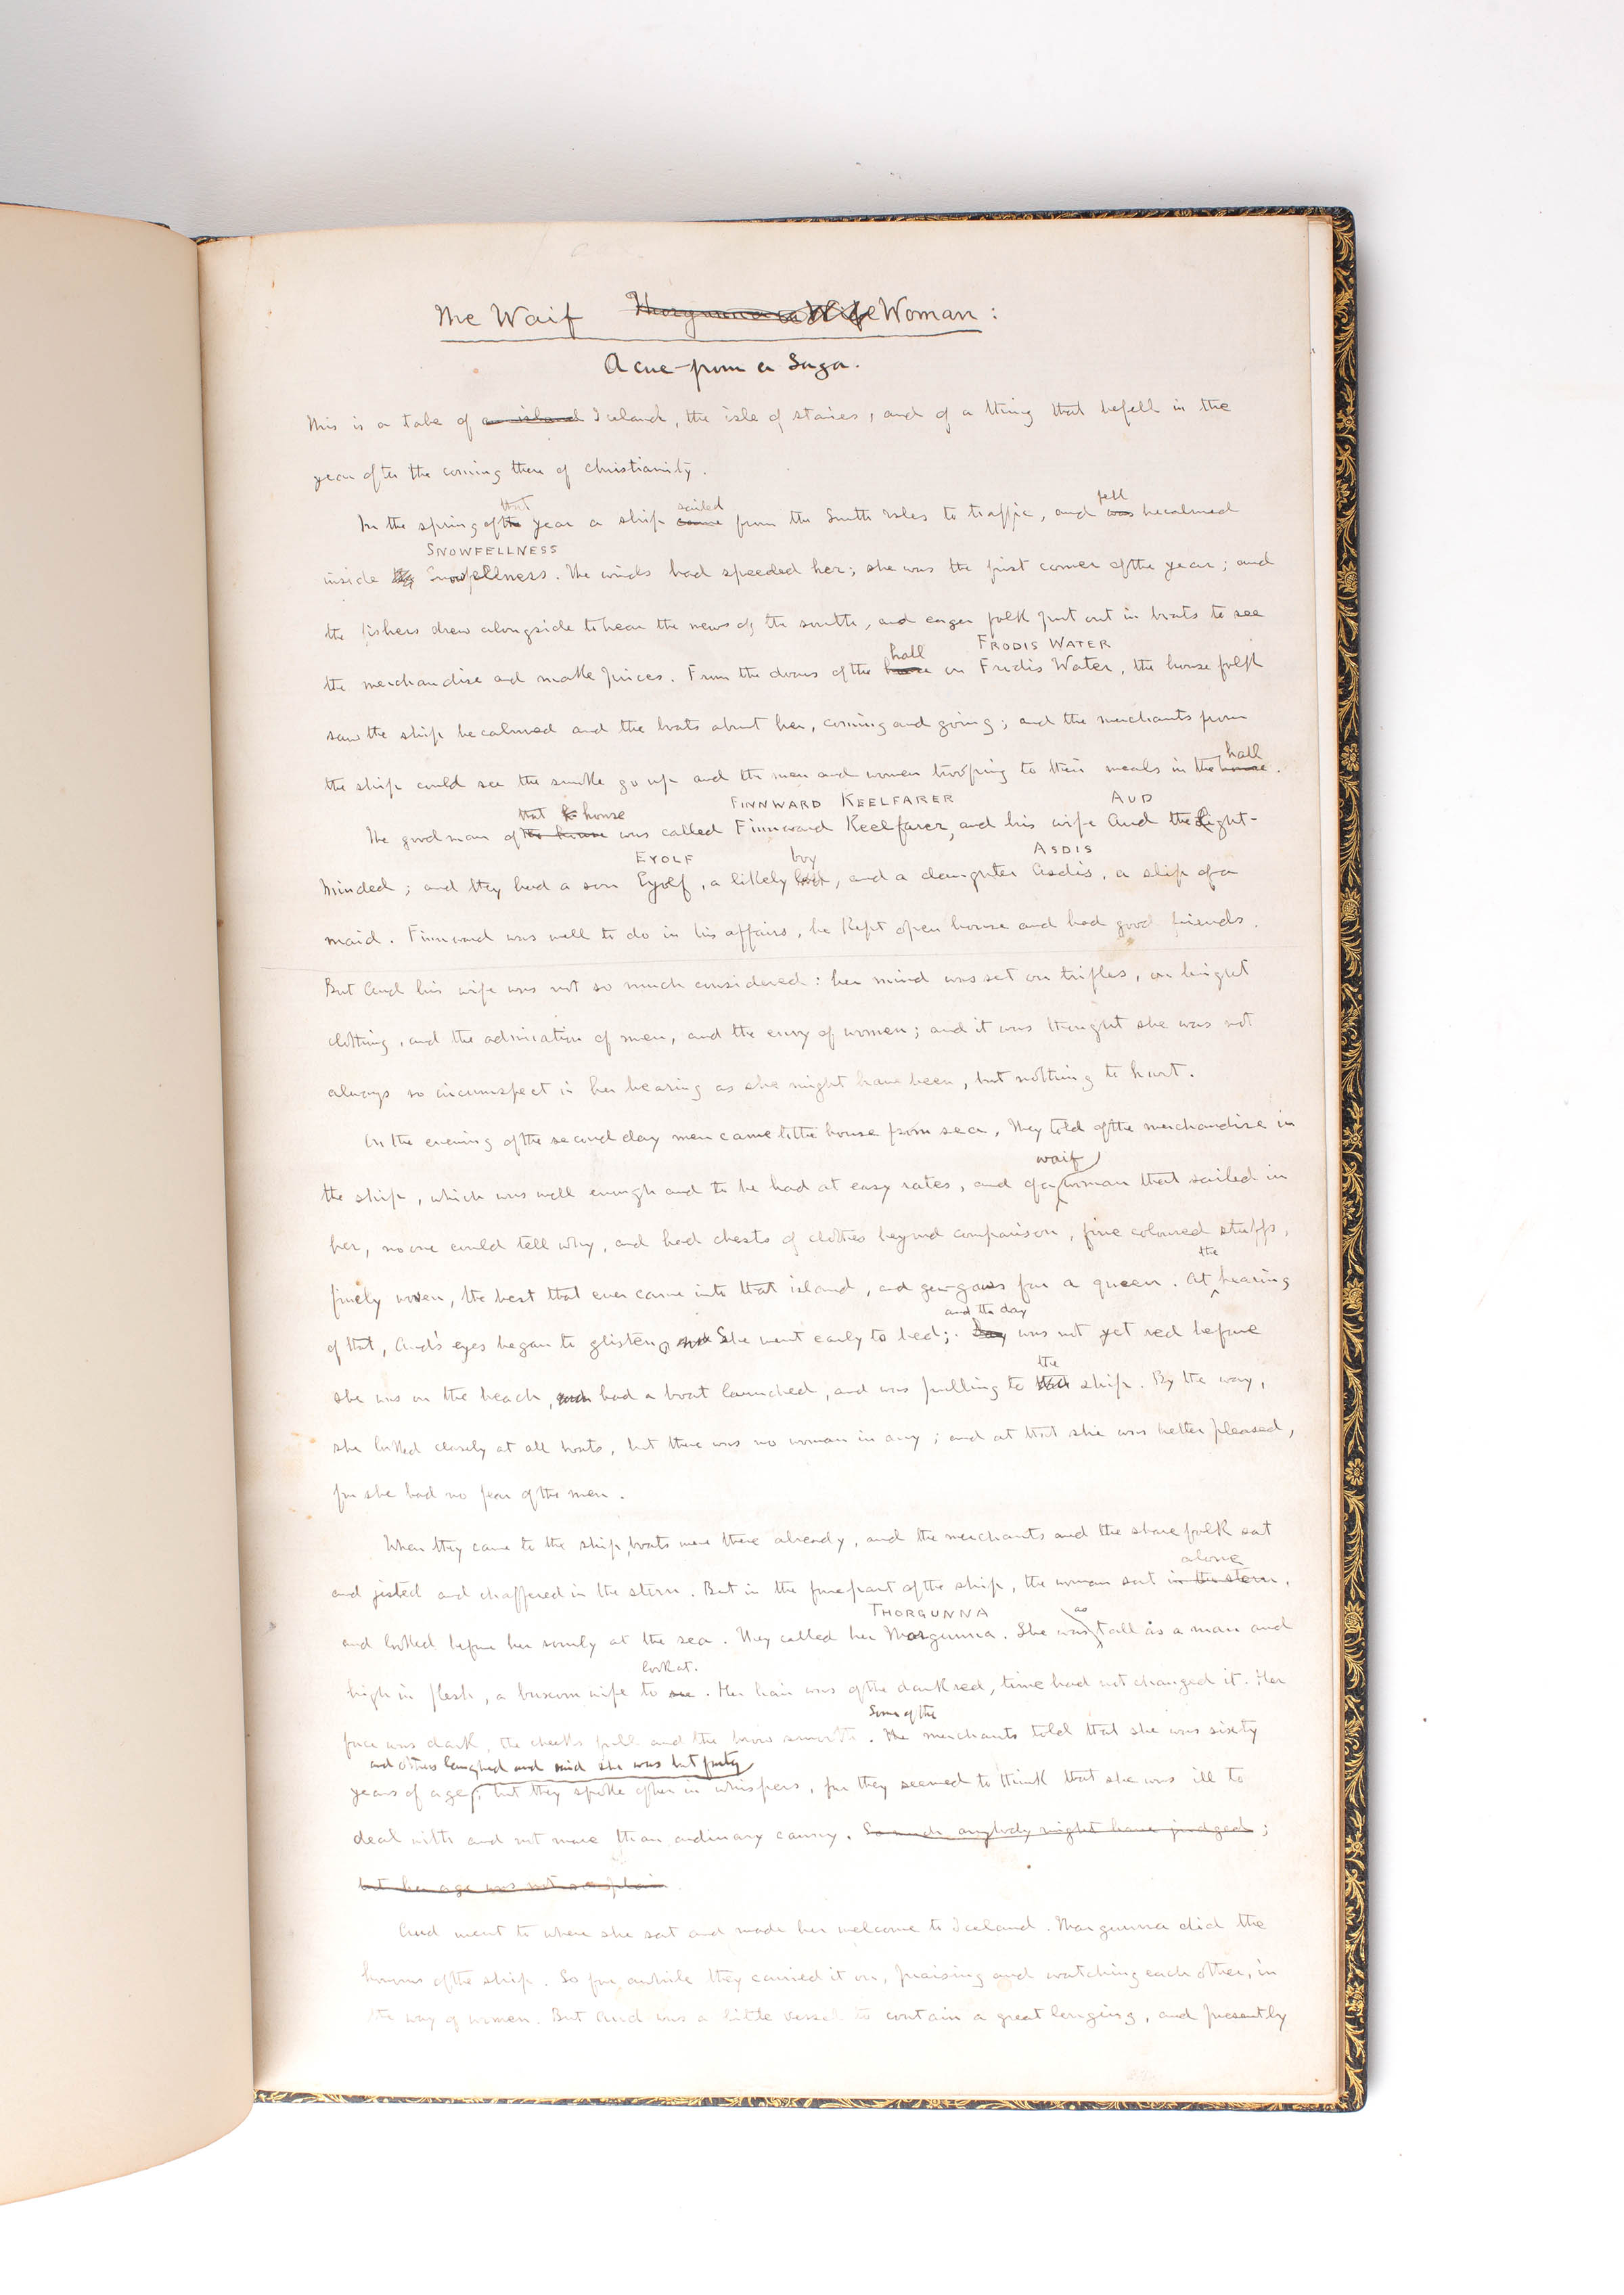 The Waif Woman :
A cue – from a Saga.
This is a tale of Iceland, the isle of stories, and of a thing that befell in the
year after the coming there of Christianity.
that sailed fell
In the spring of the year a ship came from the South Isles to traffic, and was becalmed
SNOWFELLNESS
inside Snowfellness. The winds had speeded her; she was the first comer of the year; and
the fishers drew alongside to hear the news of the south, and eager folk put out in boats to see
hall FRODIS WATER
the merchandise and make prices. From the doors of the house on Frodis Water, the house folk
saw the ship becalmed and the boats about her, coming and going; and the merchants from
hall
the ship could see the smoke go up and the men and women trooping to their meals in the house.
that house FINNWARD KEELFARER AUD
The goodman of the house was called Finnward Keelfarer, and his wife Aud the Light-
EYOLF boy ASDIS
Minded; and they had a son Eyolf, a likely , and a daughter Asdis, a slip of a
maid. Finnward was well to do in his affairs, he kept open house and had good friends.
But Aud his wife was not so much considered: her mind was set on trifles, on bright
clothing, and the admiration of men, and the envy of women; and it was thought she was not
always so circumspect in her bearing as she might have been, but nothing to hurt.
On the evening of the second day men came to the house from sea. They told of the merchandise in
waif
the ship, which was well enough and to be had at easy rates, and of a woman that sailed in
her, no one could tell why, and had chests of clothes beyond comparison, fine coloured stuffs,
the
finely woven, the best that ever came into that island, and gewgaws for a queen. At hearing
and the day
of that, Aud's eyes began to glisten. She went early to bed; Day was not yet red before
the
she was on the beach, had a boat launched, and was pulling to that ship. By the way,
she looked closely at all boats, but there was no woman in any; and at that she was better pleased,
for she had no fear of the men.
When they came to the ship, boats were there already, and the merchants and the shore folk sat
alone
and jested and chaffered in the stern. But in the fore part of the ship, the woman sat in the stern,
THORGUNNA as
and looked before her sourly at the sea. They called her Thorgunna. She was tall as a man and
look at.
high in flesh, a buxom wife to see. Her hair was of the dark red, time had not changed it. Her
Some of the
face was dark, the cheeks full and the brow smooth. The merchants told that she was sixty
and others laughed and said she was but forty
years of age; but they spoke of her in whispers, for they seemed to think that she was ill to
deal with and not more than ordinary canny. So much anybody might have judged;
but her age was not so plain.
Aud went to where she sat and made her welcome to Iceland. Thorgunna did the
honours of the ship. So for awhile they carried it on, praising and watching each other, in
the way of women. But Aud was a little vessel to contain a great longing, and presently